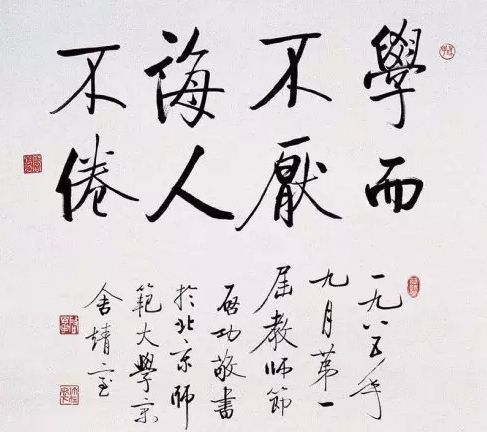 學而
不厭
誨人
不倦
一九八五年
九月第一
屆教師節
啓功敬書
於北京師
範大學
舍